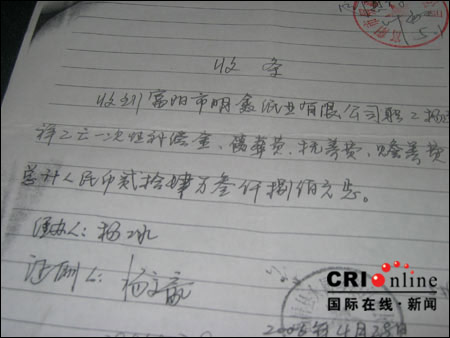 收条
收到富阳市明鑫纸业有限公司职工杨
祥工亡一次性补偿金、丧葬费、抚养费、赡养费
总计人民币贰拾肆万叁仟捌佰元忠。
经办人：杨
证明人：杨文
2005年4月29日
CRI Online
国际在线·新闻